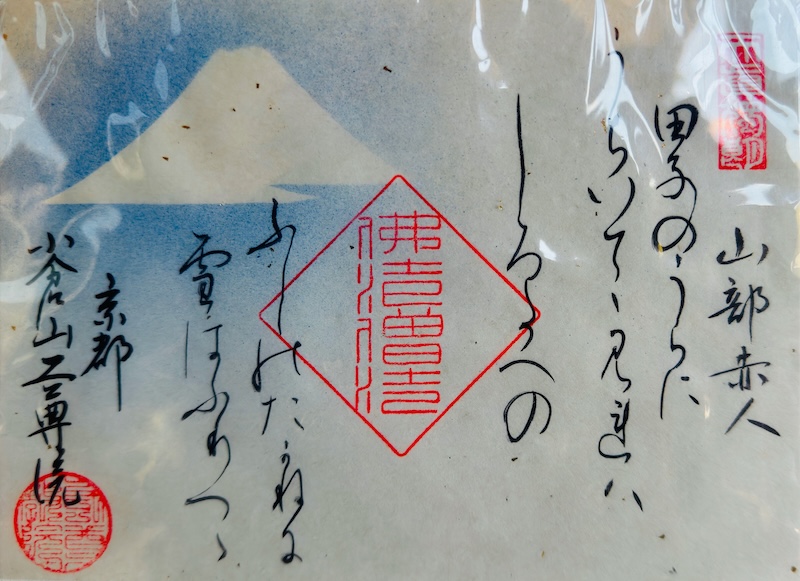 山部赤人
田子のうらに
うちいてゝ見れハ
しろたへの
ふしのたかねに
雪はふりつゝ
京都
小倉山二尊院